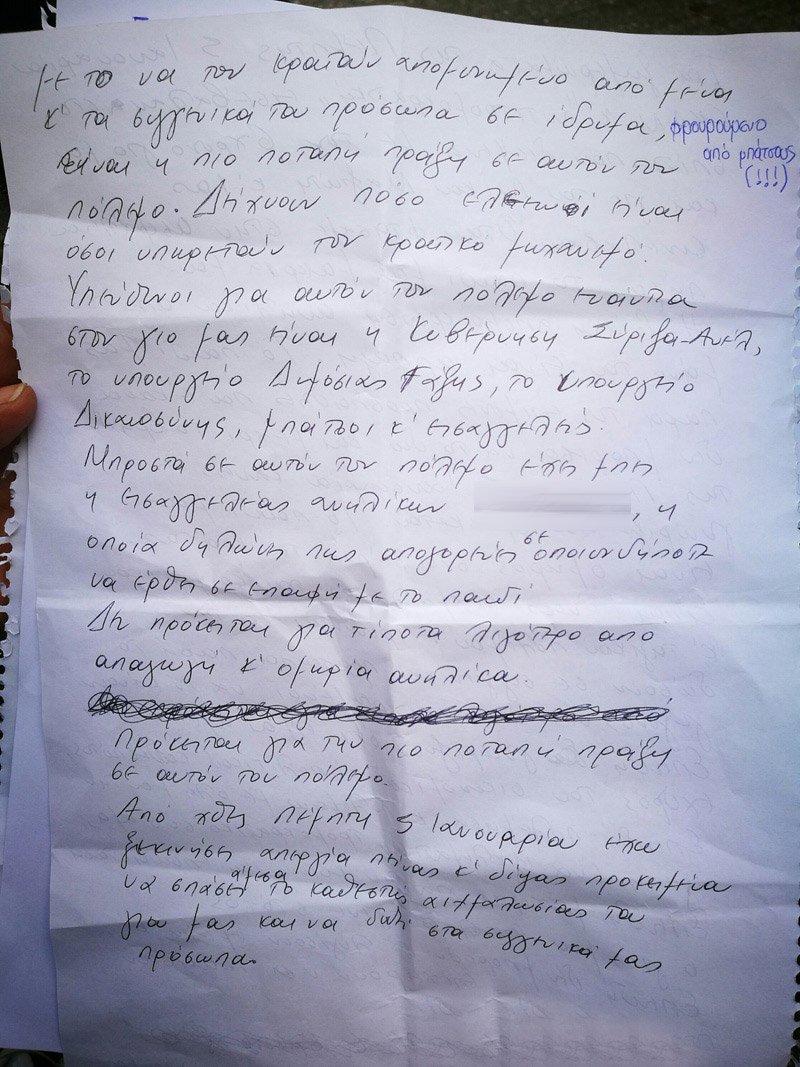 με το να τον κρατούν απομονωμένο από μένα
κ' τα συγγενικά του πρόσωπα σε ίδρυμα, φρουρούμενο από μπάτσους (!!!)
είναι η πιο ποταπή πράξη σε αυτόν τον
πόλεμο. Δείχνουν πόσο ελεεινοί είναι
όσοι υπηρετούν τον κρατικό μηχανισμό.
Υπεύθυνοι για αυτόν τον πόλεμο εναντια
στον γιο μας είναι η Κυβέρνηση Σύριζα-Ανέλ,
το υπουργείο Δημόσιας Τάξης, το υπουργείο
Δικαιοσύνης, μπάτσοι κ' εισαγγελείς.
Μπροστά σε αυτόν τον πόλεμο έχει μπει
η εισαγγελέας ανηλίκων , η
οποία δηλώνει πως απαγορεύει σε οποιονδήποτε
να έρθει σε επαφή με το παιδί
Δεν πρόκειται για τίποτα λιγότερο από
απαγωγή κ' ομηρία ανηλίκου.
Πρόκειται για την πιο ποταπή πράξη
σε αυτόν τον πόλεμο.
Από χθες Πέμπτη 5 Ιανουαρίου έχω
ξεκινήσει απεργία πείνας κ' δίψας προκειμένου
να σπάσει άμεσα το καθεστώς αιχμαλωσίας του
γιου μας και να δοθεί στα συγγενικά μας
πρόσωπα.